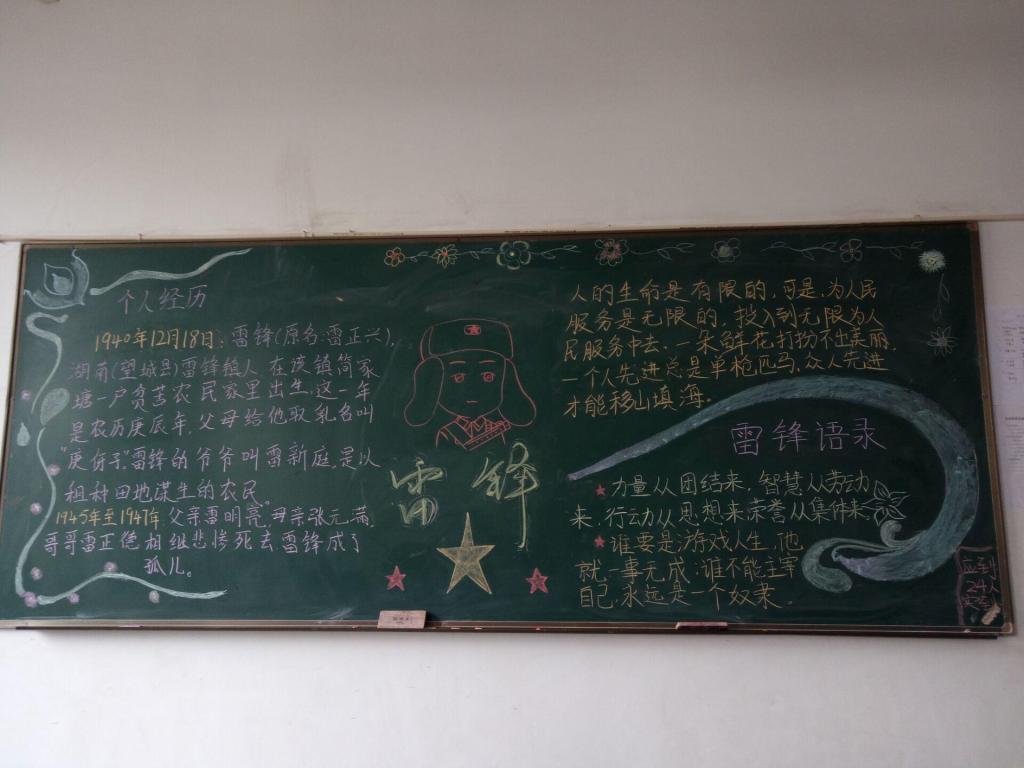 个人经历
1940年12月18日：雷锋(原名：雷正兴),
湖南(望城县)雷锋镇人 在该镇简家
塘一户贫苦农民家里出生,这一年
是农历庚辰年,父母给他取乳名叫
"庚伢子"雷锋的爷爷叫雷新庭,是以
租种田地谋生的农民。
1945年至1947年 父亲雷明亮,母亲张元满,
哥哥雷正德相继悲惨死去 雷锋成了
孤儿。
雷锋
人的生命是有限的,可是,为人民
服务是无限的,投入到无限为人
民服务中去,一朵鲜花,打扮不出美丽,
一个人先进总是单枪匹马,众人先进
才能移山填海。
雷锋语录
力量从团结来,智慧从劳动
来,行动从思想来荣誉从集体来.
谁要是游戏人生,他
就一事无成;谁不能主宰
自己,永远是一个奴隶.
应到
24人